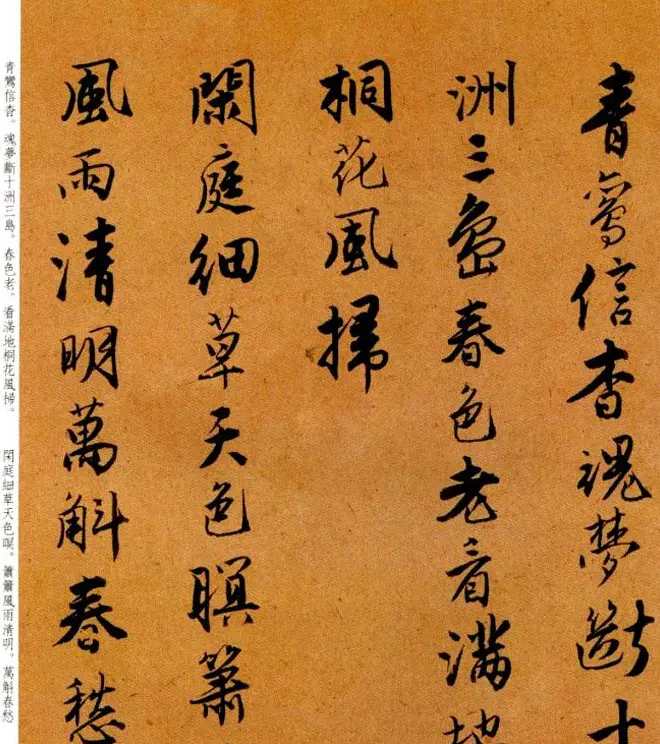 青鸞信杳魂夢斷十
洲三島春色老看滿地
桐花風掃
閑庭細草天色暝蕭
風雨清明萬斛春愁
青鸞信杳。魂夢斷十洲三島。春色老。看滿地桐花風掃。　閑庭細草天色暝。蕭蕭風雨清明。萬斛春愁